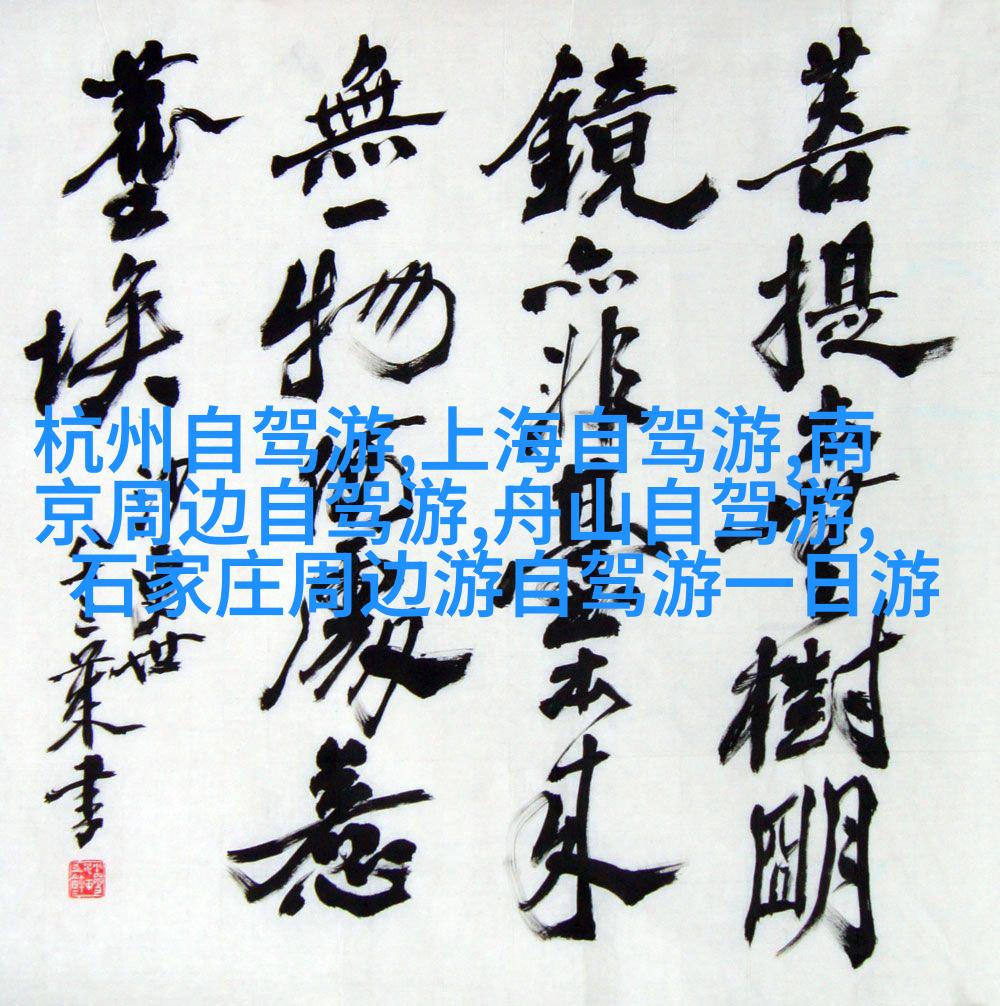 菩提樹明
鏡亦非臺本来
無一物何處惹
塵埃
世
葉書
杭州自驾游,上海自驾游,南
京周边自驾游,舟山自驾游,
石家庄周边游自驾游一日游